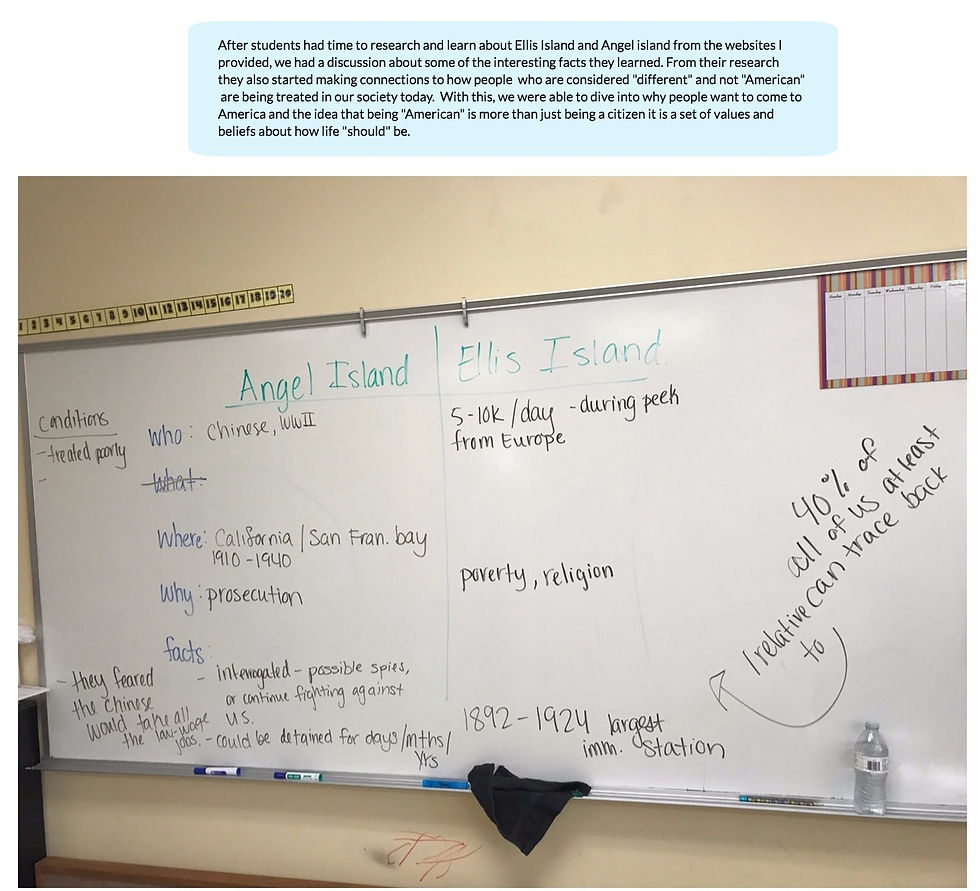 After students had time to research and learn about Ellis Island and Angel island from the websites I
provided, we had a discussion about some of the interesting facts they learned. From their research
they also started making connections to how people who are considered "different" and not "American"
are being treated in our society today. With this, we were able to dive into why people want to come to
America and the idea that being "American" is more than just being a citizen it is a set of values and
beliefs about how life "should" be.
1 2 3 4 5 6 7 8 9 10 11 12 13 14 15 16 17 18 19 20
Sunday Monday Tuesday Wednesday Thursday Friday Saturday
Angel Island
Conditions
- treated poorly
-
Who: Chinese, WWII
What:
Where: California / San Fran. bay
1910-1940
Why: prosecution
facts:
- they feared
the Chinese
would take all
the low-wage
jobs.
- interrogated - possible spies,
or continue fighting against
U.S.
- could be detained for days/mths/
yrs
Ellis Island.
5-10K /day - during peek
from Europe
poverty, religion
1892-1924 largest
imm. Station
40% of
all of us at least
1 relative can trace back
to